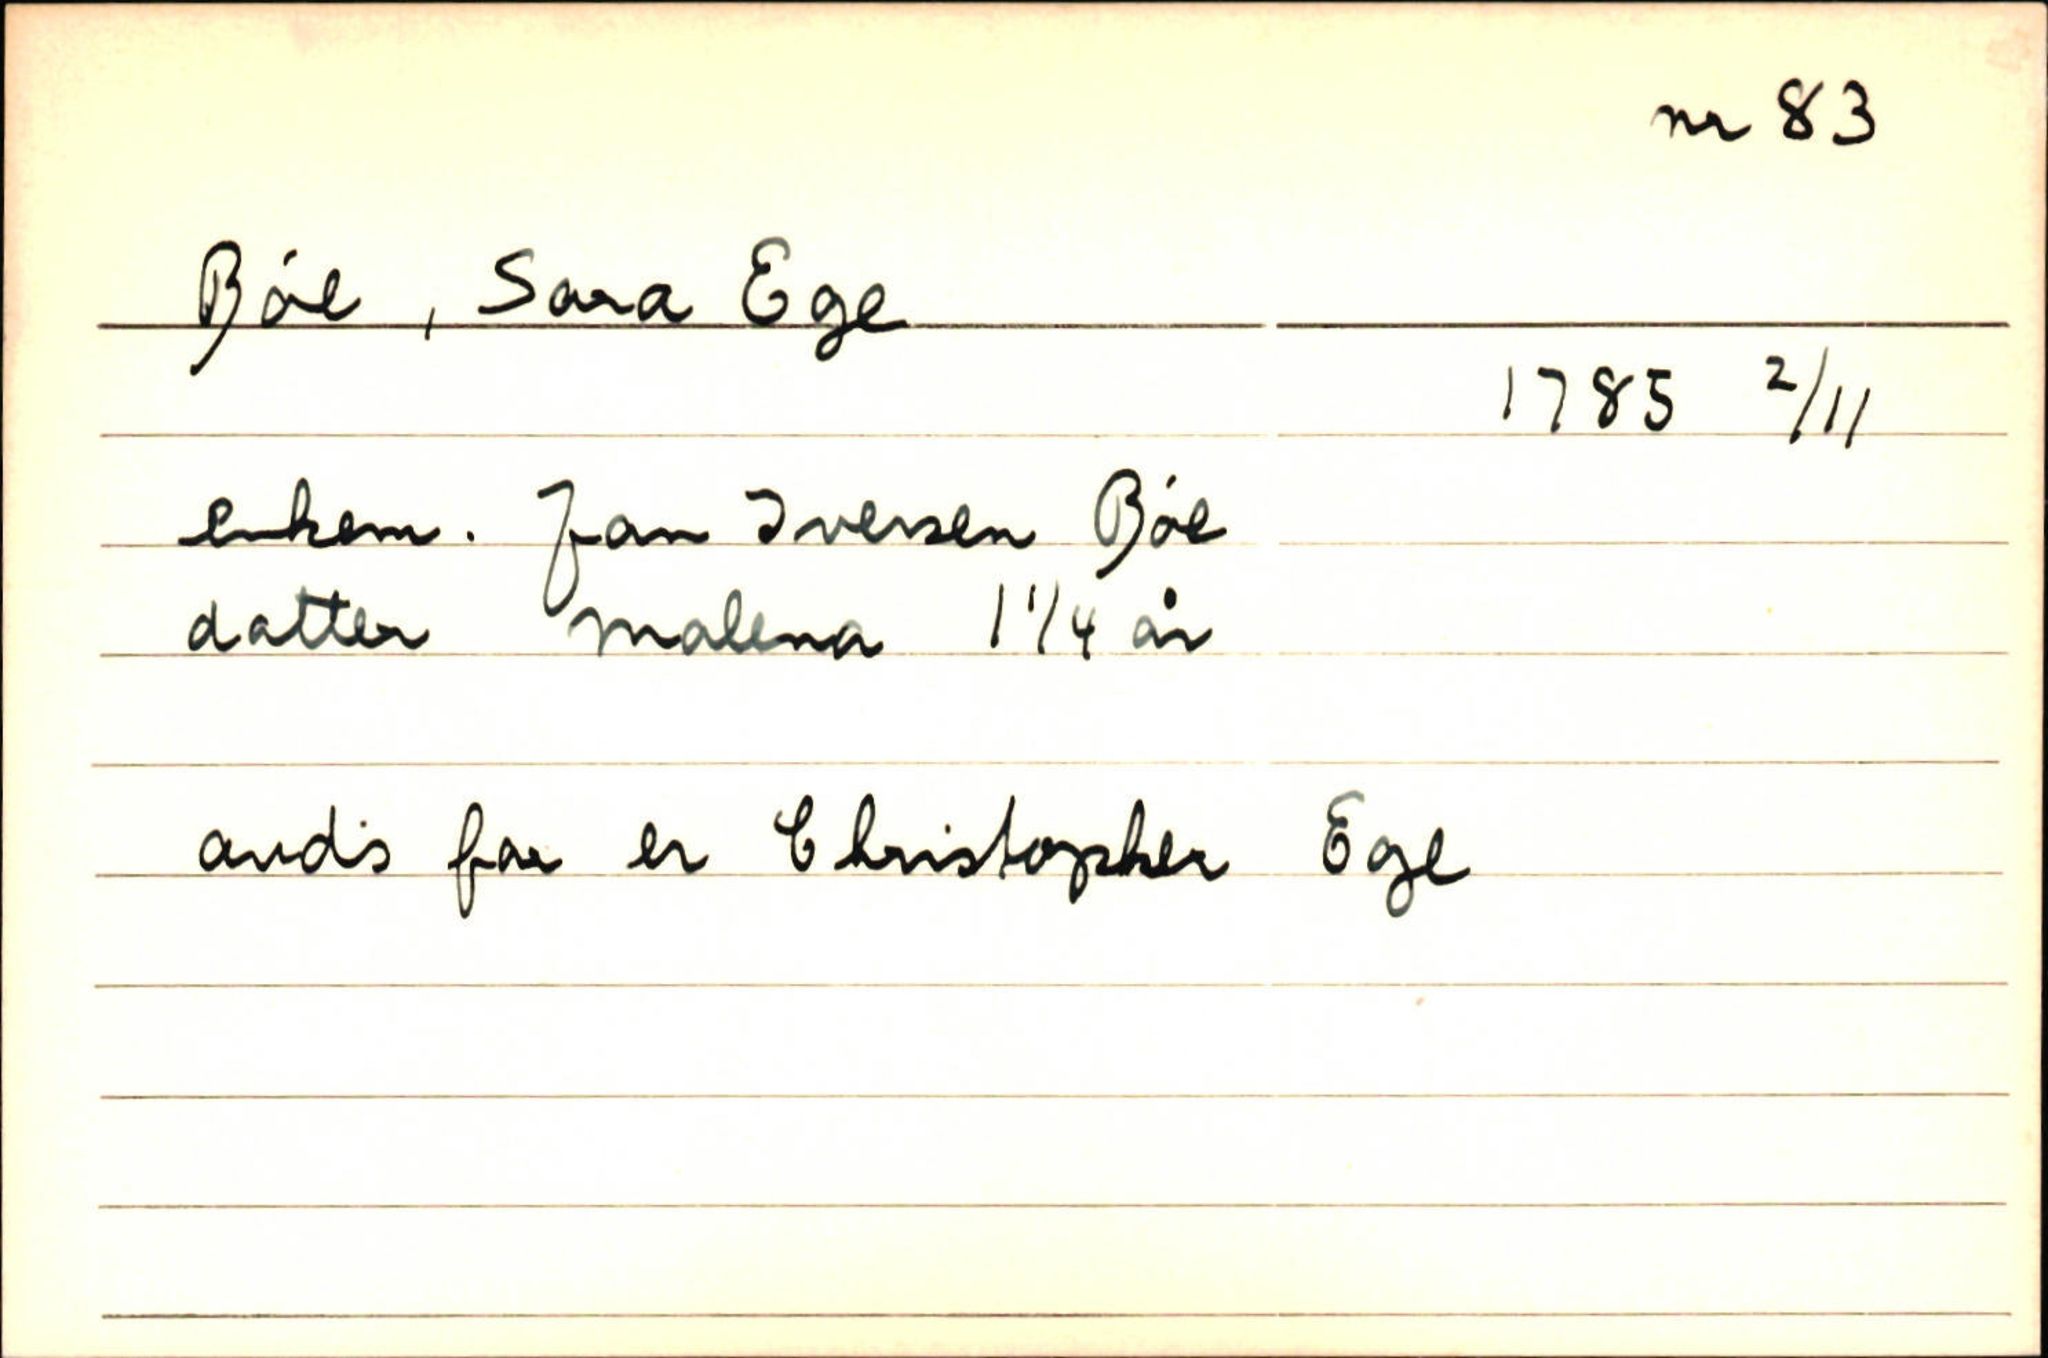 nr 83
Bóe, Sara Ege
1785 2/11
enkem. Jan Iversen Bóe
datter Malena 1 1/4 år
avdis far er Christopher Ege